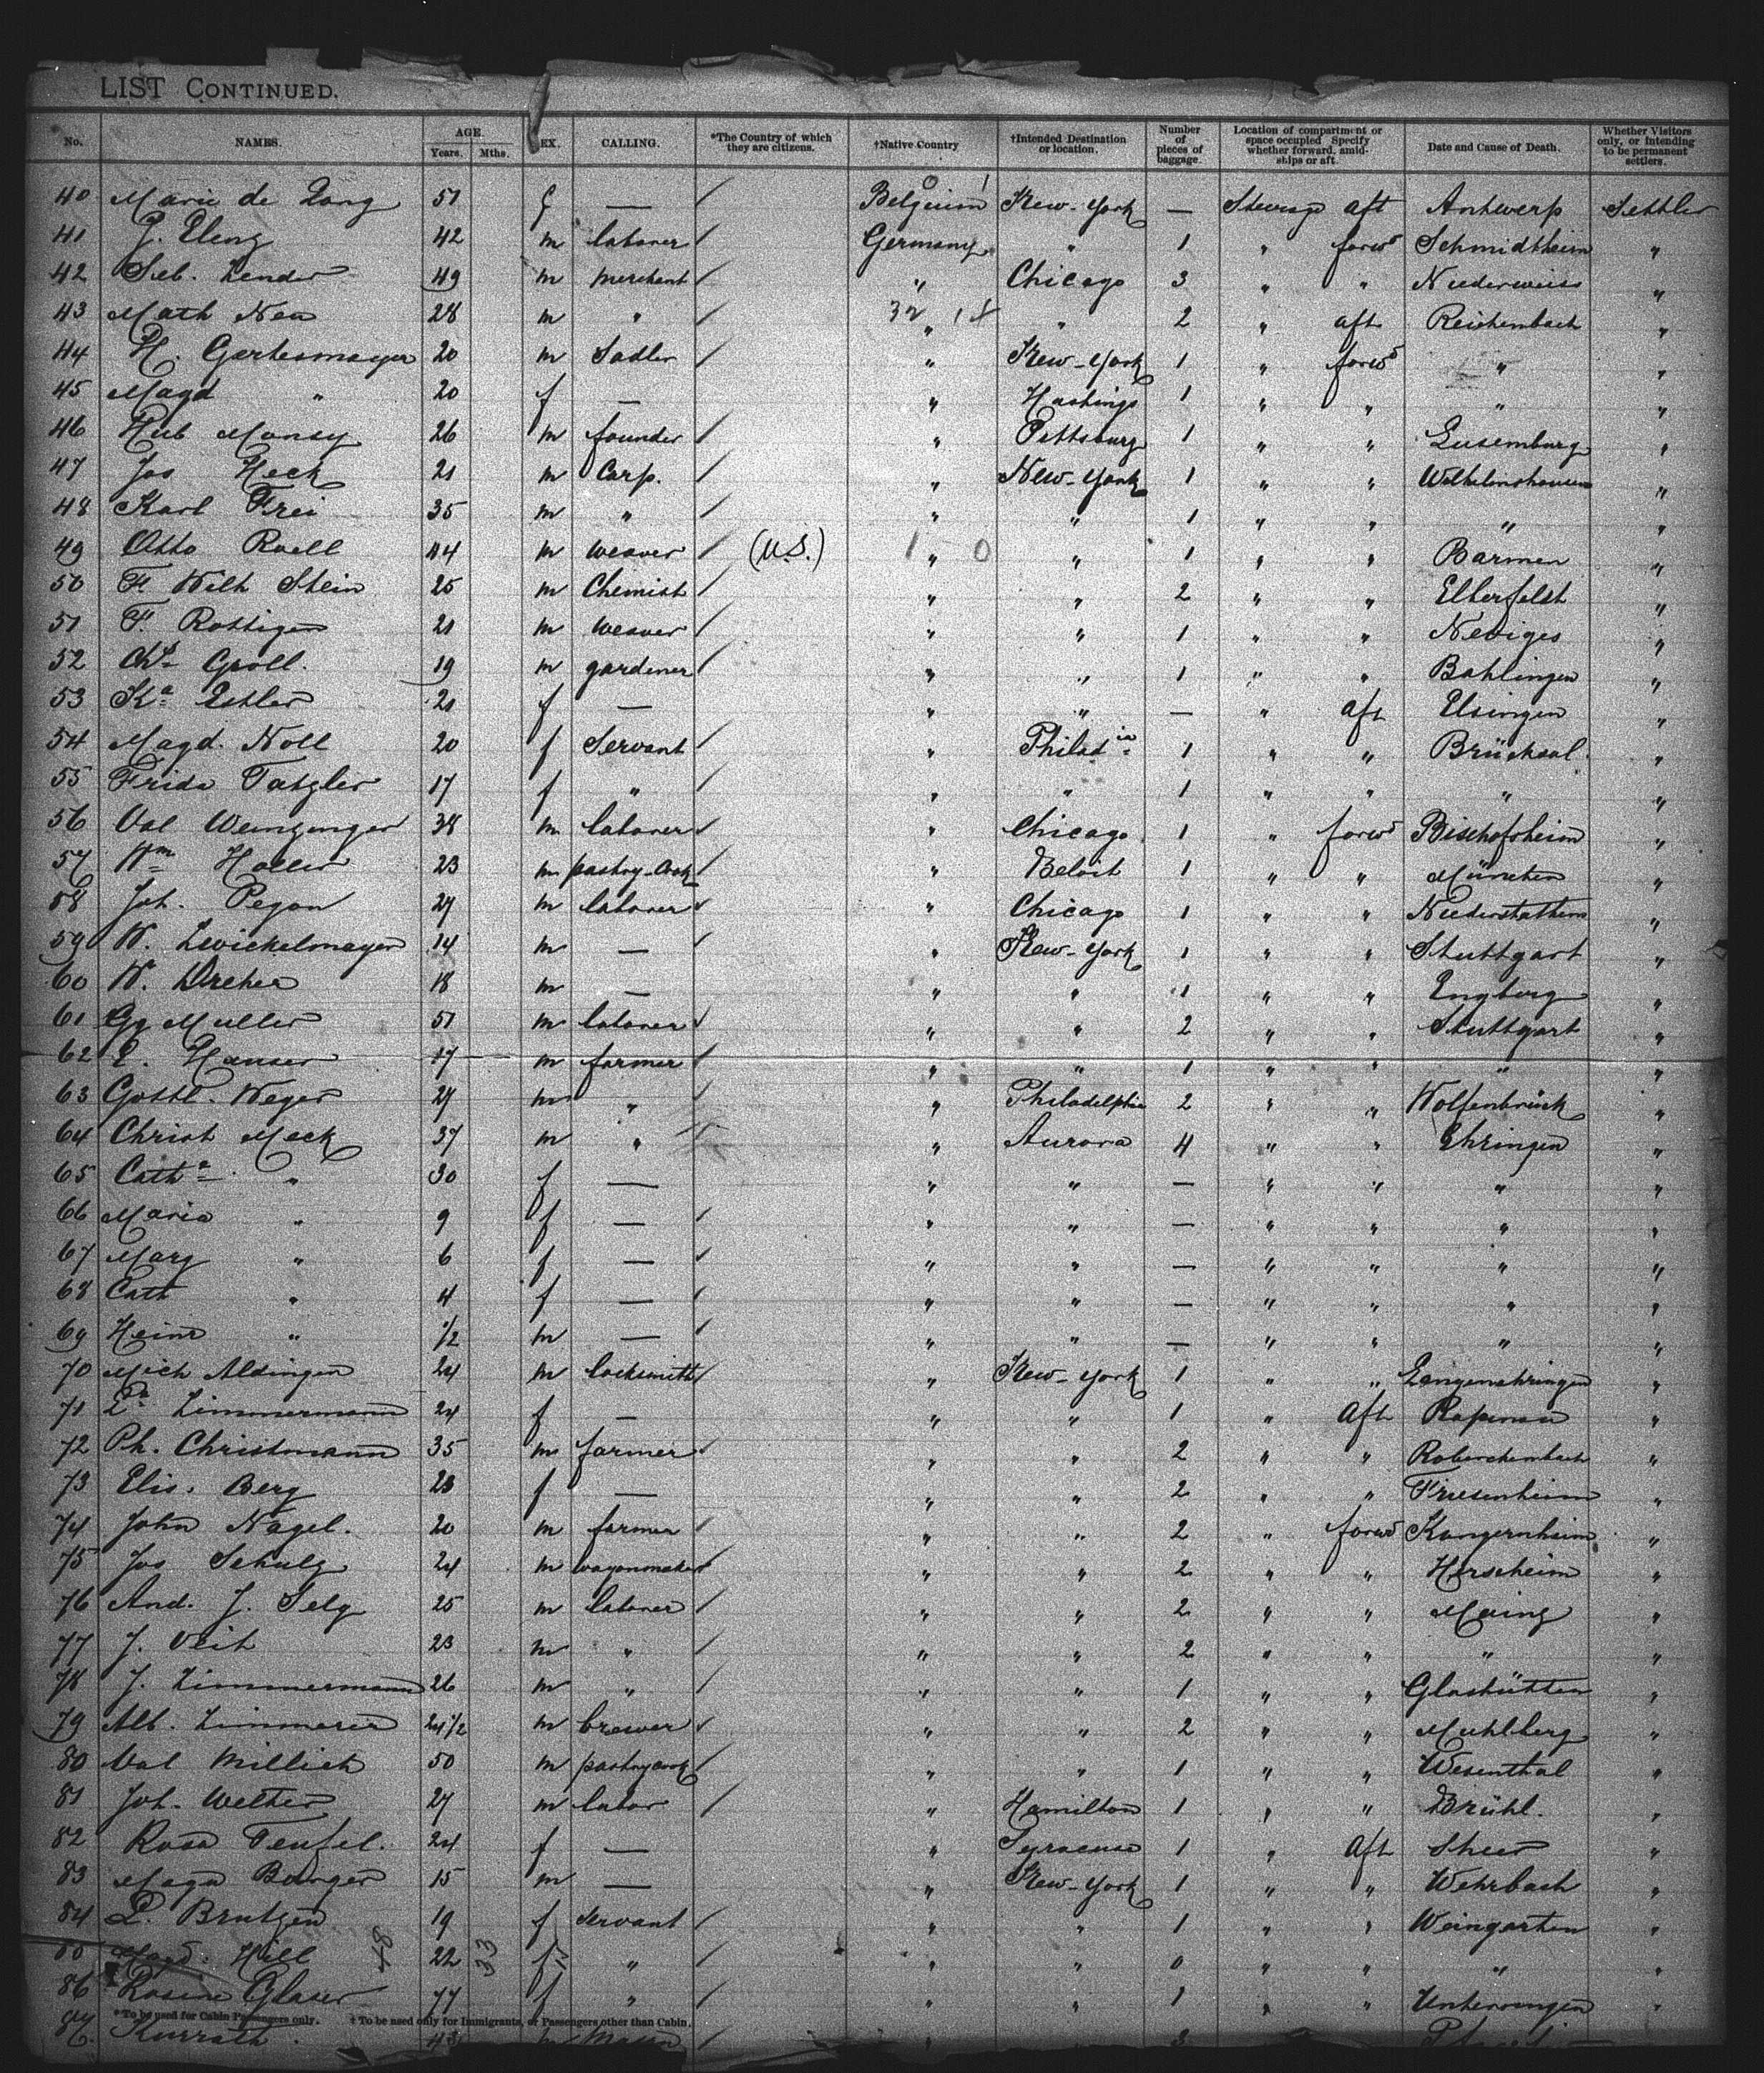 LIST CONTINUED.
No. NAMES. AGE. Years. Mths. SEX. CALLING. *The Country of which they are citizens. †Native Country †Intended Destination or location. Number of pieces of baggage. Location of compartment or space occupied Specify whether forward, amidships or aft. Date and Cause of Death. Whether Visitors only, or intending to be permanent settlers.
40 Marie de Jong 51 f — / Belgium New-York — Steerage aft Antwerp Settler
41 42 m laborer / Germany " 1 " forwd Schmidtheim "
42 Seb. Zender 49 m merchant / " Chicago 3 " " Niederweiss "
43 Math Neu 28 m " / " " 2 " aft Reichenbach "
44 H. Gertesmayer 20 m Sadler / " New-York 1 " forwd " "
45 Magd " 20 f — " Hastings 1 " " " "
46 Hub 26 m founder / " Pittsburg 1 " " Luxemburg "
47 Jos Heck 21 m Carp. / " New-York 1 " " "
48 Karl Frei 35 m " / " " 1 " " " "
49 Otto Roell 44 m weaver / (U.S.) " " 1 " " Barmen "
50 Fr Wilh Stein 25 m Chemist / " " 2 " " Elberfeldt "
51 F. Rottigen 21 m weaver / " " 1 " " Neviges "
52 Chs Groll. 19 m gardener / " " 1 " " Bahlingen "
53 Ka Estler 21 f — " " — " aft Elsingen "
54 Magd. Noll 20 f Servant / " Philadia 1 " " Brücksal. "
55 Frida Tatzler 17 f " / " " 1 " " " "
56 Val Weinzinger 38 m laborer / " Chicago 1 " forwd Bischofsheim "
57 Wm Holler 23 m pastry-Cook / " Beloit 1 " " München "
58 Joh. Pegan 29 m laborer / " Chicago 1 " " Niederstetten "
59 W. Zwickelmayer 14 m — / " New-York 1 " " Stuttgart "
60 W. Dreher 18 m — " " 1 " " Engberg "
61 Gg Muller 51 m laborer / " " 2 " " Stuttgart "
62 E. Hauser 17 m farmer / " " 1 " " " "
63 Gottl. Weger 29 m " / " Philadelphia 2 " " Wolfenbrück "
64 Christ Meck 37 m " " Aurora 4 " " Ehringen "
65 Catha " 30 f — " " — " " " "
66 Maria " 9 f — / " " — " " " "
67 Marg " 6 f — / " " — " " " "
68 Cath " 4 f — / " " — " " " "
69 Heinr " 1/2 m — / " " — " " " "
70 Mich Aldingen 24 m locksmith / " New-York 1 " " "
71 Zimmermann 24 f — " " 1 " aft Rapenau "
72 Ph. Christmann 35 m farmer / " " 2 " " "
73 Elis. Berg 23 f — " " 2 " " Friesenheim "
74 John Nagel. 20 m farmer / " " 2 " forwd Kungernheim "
75 Jos Schulz 24 m wagonmaker / " " 2 " " Herscheim "
76 And. J. Selg 25 m laborer / " " 2 " " Mainz "
77 J. Veit 23 m " / " " 2 " " " "
78 J. Zimmermann 26 m " / " " 1 " " Glashütten "
79 Alb. Zimmerer 24 1/2 m brewer / " " 2 " " Muhlberg "
80 Val Millich 50 m pastrycook / " " 1 " " Wesenthal "
81 Joh. Welter 27 m labor / " Hamilton 1 " " Brühl. "
82 Rosa Teufel. 24 f — " Syracuse 1 " aft Scheer "
83 15 m — " New-York 1 " " Wehrbach "
84 L. Brutzen 19 f servant / " " 1 " " Weingarten "
85 Magd. Hill 22 f " / " " 0 " " " "
86 Rosine Glaser 77 f " / " " 1 " " "
*To be used for Cabin Passengers only. †To be used only for Immigrants, or Passengers other than Cabin.
87. Kurrath. m Mason / 3